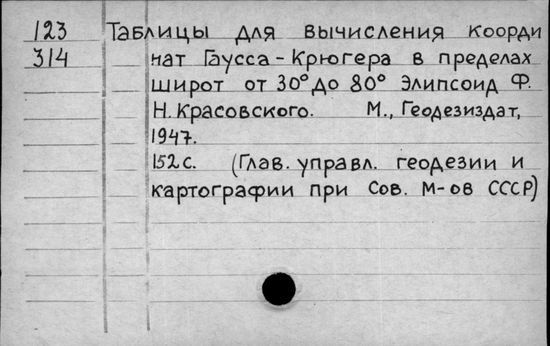 123 Таблицы для вычисления коорди
314 нат Гаусса-Крюгера в пределах
широт от 30° до 80° Элипсоид Ф.
Н. Красовского. М., Геодезиздат,
1947.
152 с. (Глав. управл. геодезии и
картографии при Сов. М-ов СССР)